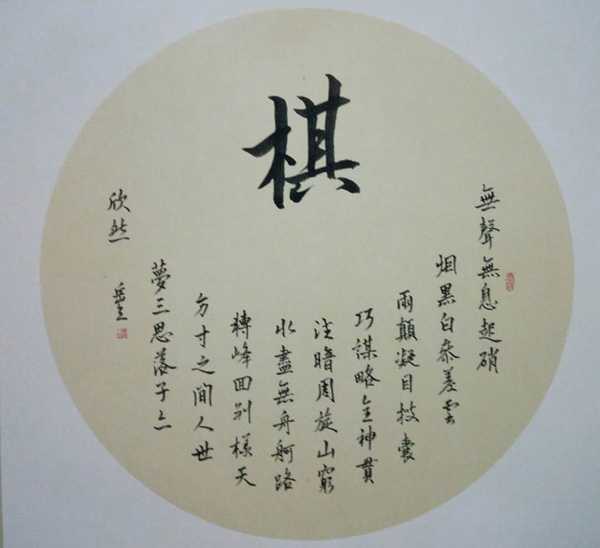 棋
無聲無息起硝
烟黑白叅差雲
雨顛凝目技囊
巧謀略全神貫
注暗周旋山窮
水盡無舟舸路
轉峰回别樣天
方寸之間人世
夢三思落子亦
欣然